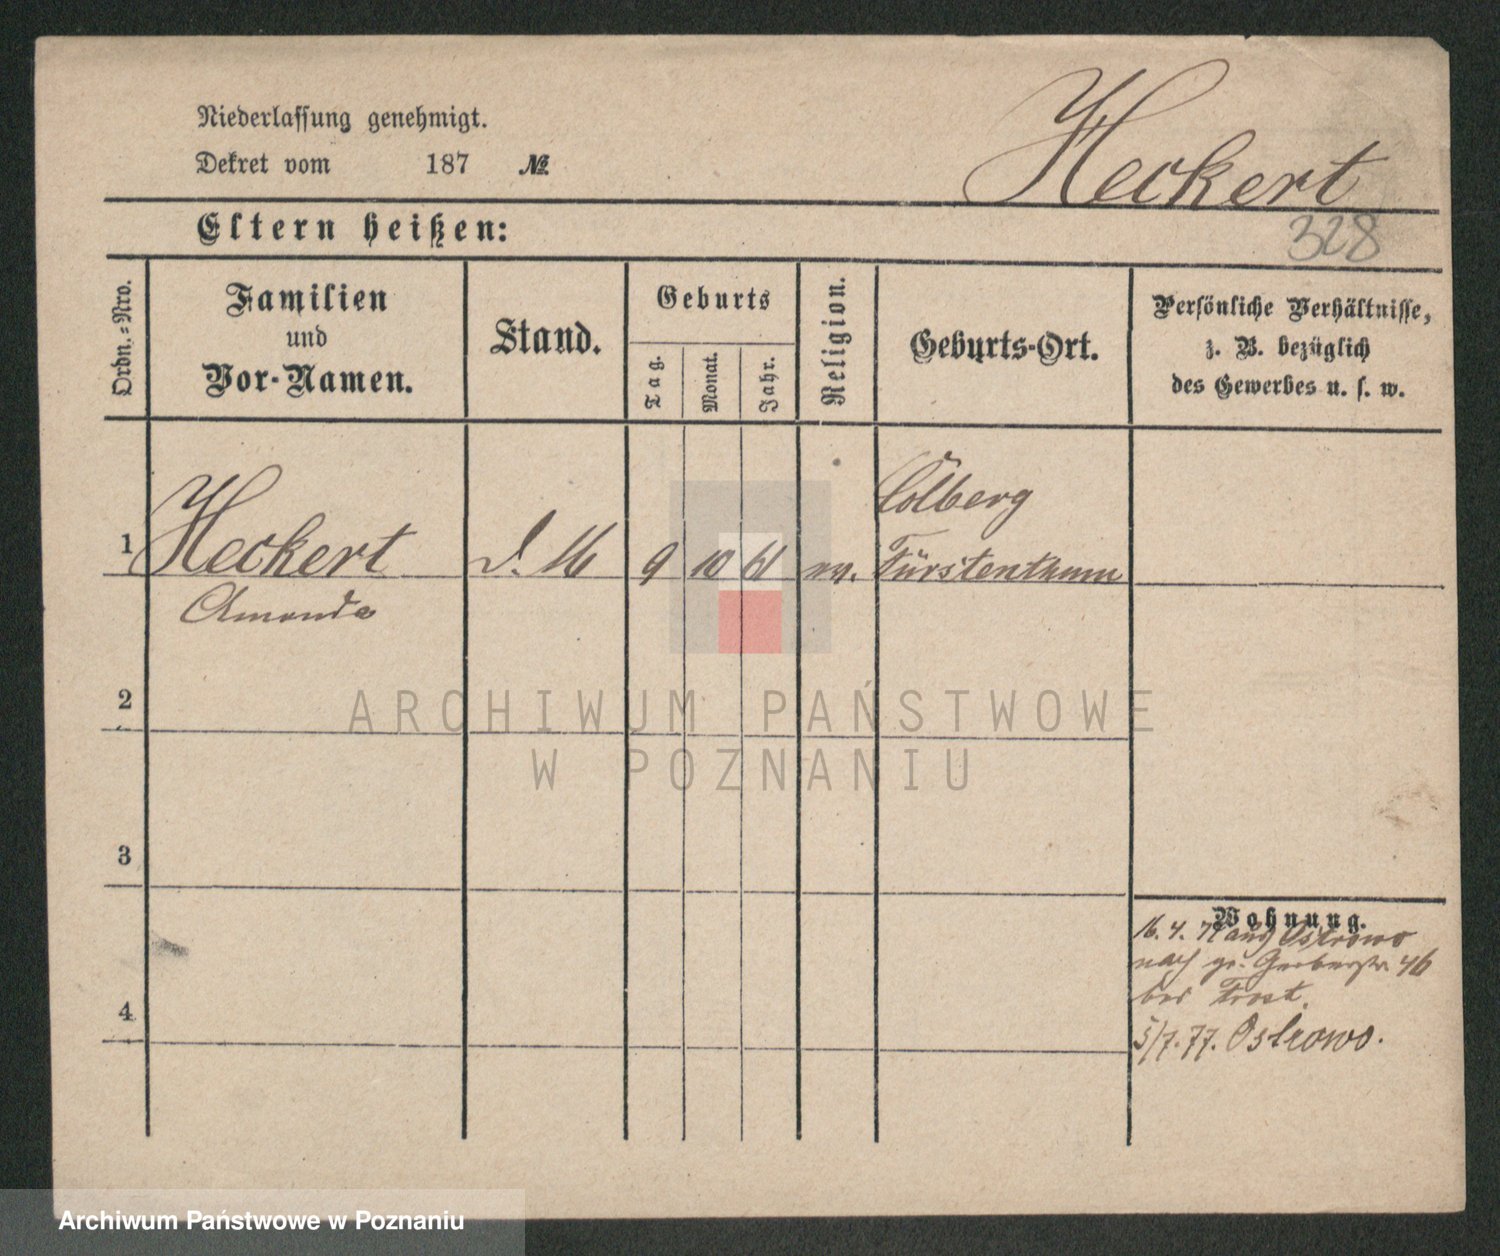 Niederlassung genehmigt.
Dekret vom 187 №
Heckert
328
Eltern heißen:
Ordn.-Nro.
Familien
und
Vor-Namen.
Stand.
Geburts
Tag.
Monat.
Jahr.
Religion.
Geburts-Ort.
Persönliche Verhältnisse,
z. B. bezüglich
des Gewerbes u. s. w.
Colberg
1 Heckert 9 10 61 Fürstenthum
Amanda
2
ARCHIWUM PAŃSTWOWE
W POZNANIU
3
Wohnung.
16. 4. 77 aus Ostrowo
nach gr. Gerberstr. 46
bei Trost.
4
5/7. 77. Ostrowo.
Archiwum Państwowe w Poznaniu